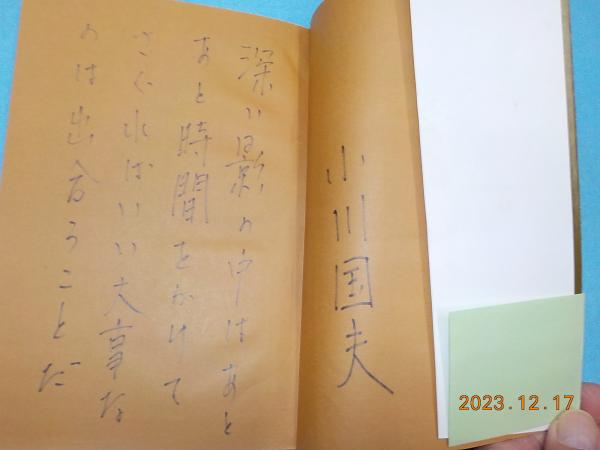 小川国夫
深い影の中はあと
あと時間をかけて
さぐればいい大事な
のは出合うことだ
2023.12.17